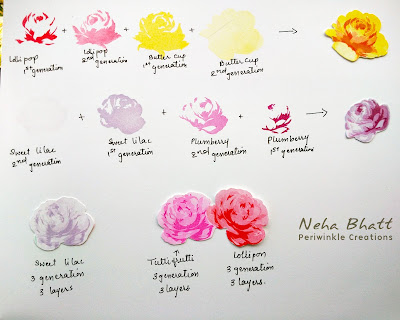 + + + →
Lollipop 1st generation
Lollipop 2nd generation
Butter Cup 1st generation
Butter Cup 2nd generation
+ + + →
Sweet lilac 2nd generation
Sweet lilac 1st generation
Plumberry 2nd generation
Plumberry 1st generation
Sweet lilac
3 generation
3 layers
↑
Tuttifrutti
3 generation
3 layers
Lollipop
3 generation
3 layers.
Neha Bhatt
Periwinkle Creations